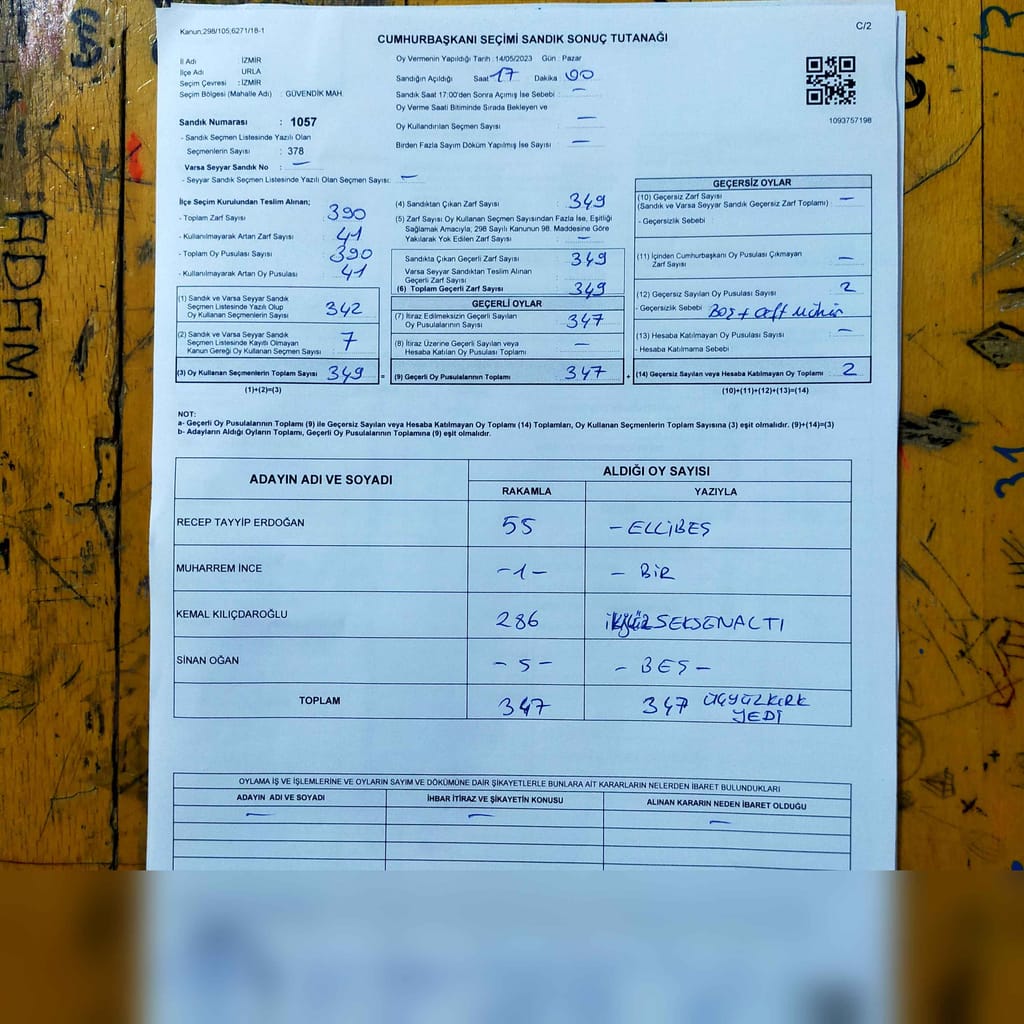 Kanun,298/105,6271/18-1
C/2
CUMHURBAŞKANI SEÇİMİ SANDIK SONUÇ TUTANAĞI
İl Adı İZMİR
İlçe Adı URLA
Seçim Çevresi : İZMİR
Seçim Bölgesi (Mahalle Adı) : GÜVENDİK MAH.
Oy Vermenin Yapıldığı Tarih : 14/05/2023 Gün : Pazar
Sandığın Açıldığı Saat 17 Dakika 00
Sandık Saat 17:00'den Sonra Açımış İse Sebebi : —
Oy Verme Saati Bitiminde Sırada Bekleyen ve
Oy Kullandırılan Seçmen Sayısı : —
Birden Fazla Sayım Döküm Yapılmış İse Sayısı : —
1093757198
Sandık Numarası : 1057
- Sandık Seçmen Listesinde Yazılı Olan
Seçmenlerin Sayısı : 378
Varsa Seyyar Sandık No : —
- Seyyar Sandık Seçmen Listesinde Yazılı Olan Seçmen Sayısı: —
İlçe Seçim Kurulundan Teslim Alınan;
- Toplam Zarf Sayısı : 390
- Kullanılmayarak Artan Zarf Sayısı : 41
- Toplam Oy Pusulası Sayısı : 390
- Kullanılmayarak Artan Oy Pusulası : 41
(1) Sandık ve Varsa Seyyar Sandık
Seçmen Listesinde Yazılı Olup
Oy Kullanan Seçmenlerin Sayısı : 342
(2) Sandık ve Varsa Seyyar Sandık
Seçmen Listesinde Kayıtlı Olmayan
Kanun Gereği Oy Kullanan Seçmen Sayısı : 7
(3) Oy Kullanan Seçmenlerin Toplam Sayısı : 349 =
(1)+(2)=(3)
(4) Sandıktan Çıkan Zarf Sayısı : 349
(5) Zarf Sayısı Oy Kullanan Seçmen Sayısından Fazla İse, Eşitliği
Sağlamak Amacıyla; 298 Sayılı Kanunun 98. Maddesine Göre
Yakılarak Yok Edilen Zarf Sayısı : —
Sandıkta Çıkan Geçerli Zarf Sayısı : 349
Varsa Seyyar Sandıktan Teslim Alınan
Geçerli Zarf Sayısı :
(6) Toplam Geçerli Zarf Sayısı : 349
GEÇERLİ OYLAR
(7) İtiraz Edilmeksizin Geçerli Sayılan
Oy Pusulalarının Sayısı : 347
(8) İtiraz Üzerine Geçerli Sayılan veya
Hesaba Katılan Oy Pusulası Toplamı : —
(9) Geçerli Oy Pusulalarının Toplamı : 347 +
GEÇERSİZ OYLAR
(10) Geçersiz Zarf Sayısı
(Sandık ve Varsa Seyyar Sandık Geçersiz Zarf Toplamı) : —
- Geçersizlik Sebebi :
(11) İçinden Cumhurbaşkanı Oy Pusulası Çıkmayan
Zarf Sayısı : —
(12) Geçersiz Sayılan Oy Pusulası Sayısı : 2
- Geçersizlik Sebebi : Boş + Çift Mühür
(13) Hesaba Katılmayan Oy Pusulası Sayısı : —
- Hesaba Katılmama Sebebi :
(14) Geçersiz Sayılan veya Hesaba Katılmayan Oy Toplamı : 2
(10)+(11)+(12)+(13)=(14)
NOT:
a- Geçerli Oy Pusulalarının Toplamı (9) ile Geçersiz Sayılan veya Hesaba Katılmayan Oy Toplamı (14) Toplamları, Oy Kullanan Seçmenlerin Toplam Sayısına (3) eşit olmalıdır. (9)+(14)=(3)
b- Adayların Aldığı Oyların Toplamı, Geçerli Oy Pusulalarının Toplamına (9) eşit olmalıdır.
ADAYIN ADI VE SOYADI ALDIĞI OY SAYISI
RAKAMLA YAZIYLA
RECEP TAYYİP ERDOĞAN 55 – ELLİBEŞ
MUHARREM İNCE –1– – BİR
KEMAL KILIÇDAROĞLU 286 İKİYÜZSEKSENALTI
SİNAN OĞAN –5– – BEŞ –
TOPLAM 347 347 ÜÇYÜZKIRK
YEDİ
OYLAMA İŞ VE İŞLEMLERİNE VE OYLARIN SAYIM VE DÖKÜMÜNE DAİR ŞİKAYETLERLE BUNLARA AİT KARARLARIN NELERDEN İBARET BULUNDUKLARI
ADAYIN ADI VE SOYADI İHBAR İTİRAZ VE ŞİKAYETİN KONUSU ALINAN KARARIN NEDEN İBARET OLDUĞU
— — —
ADEM